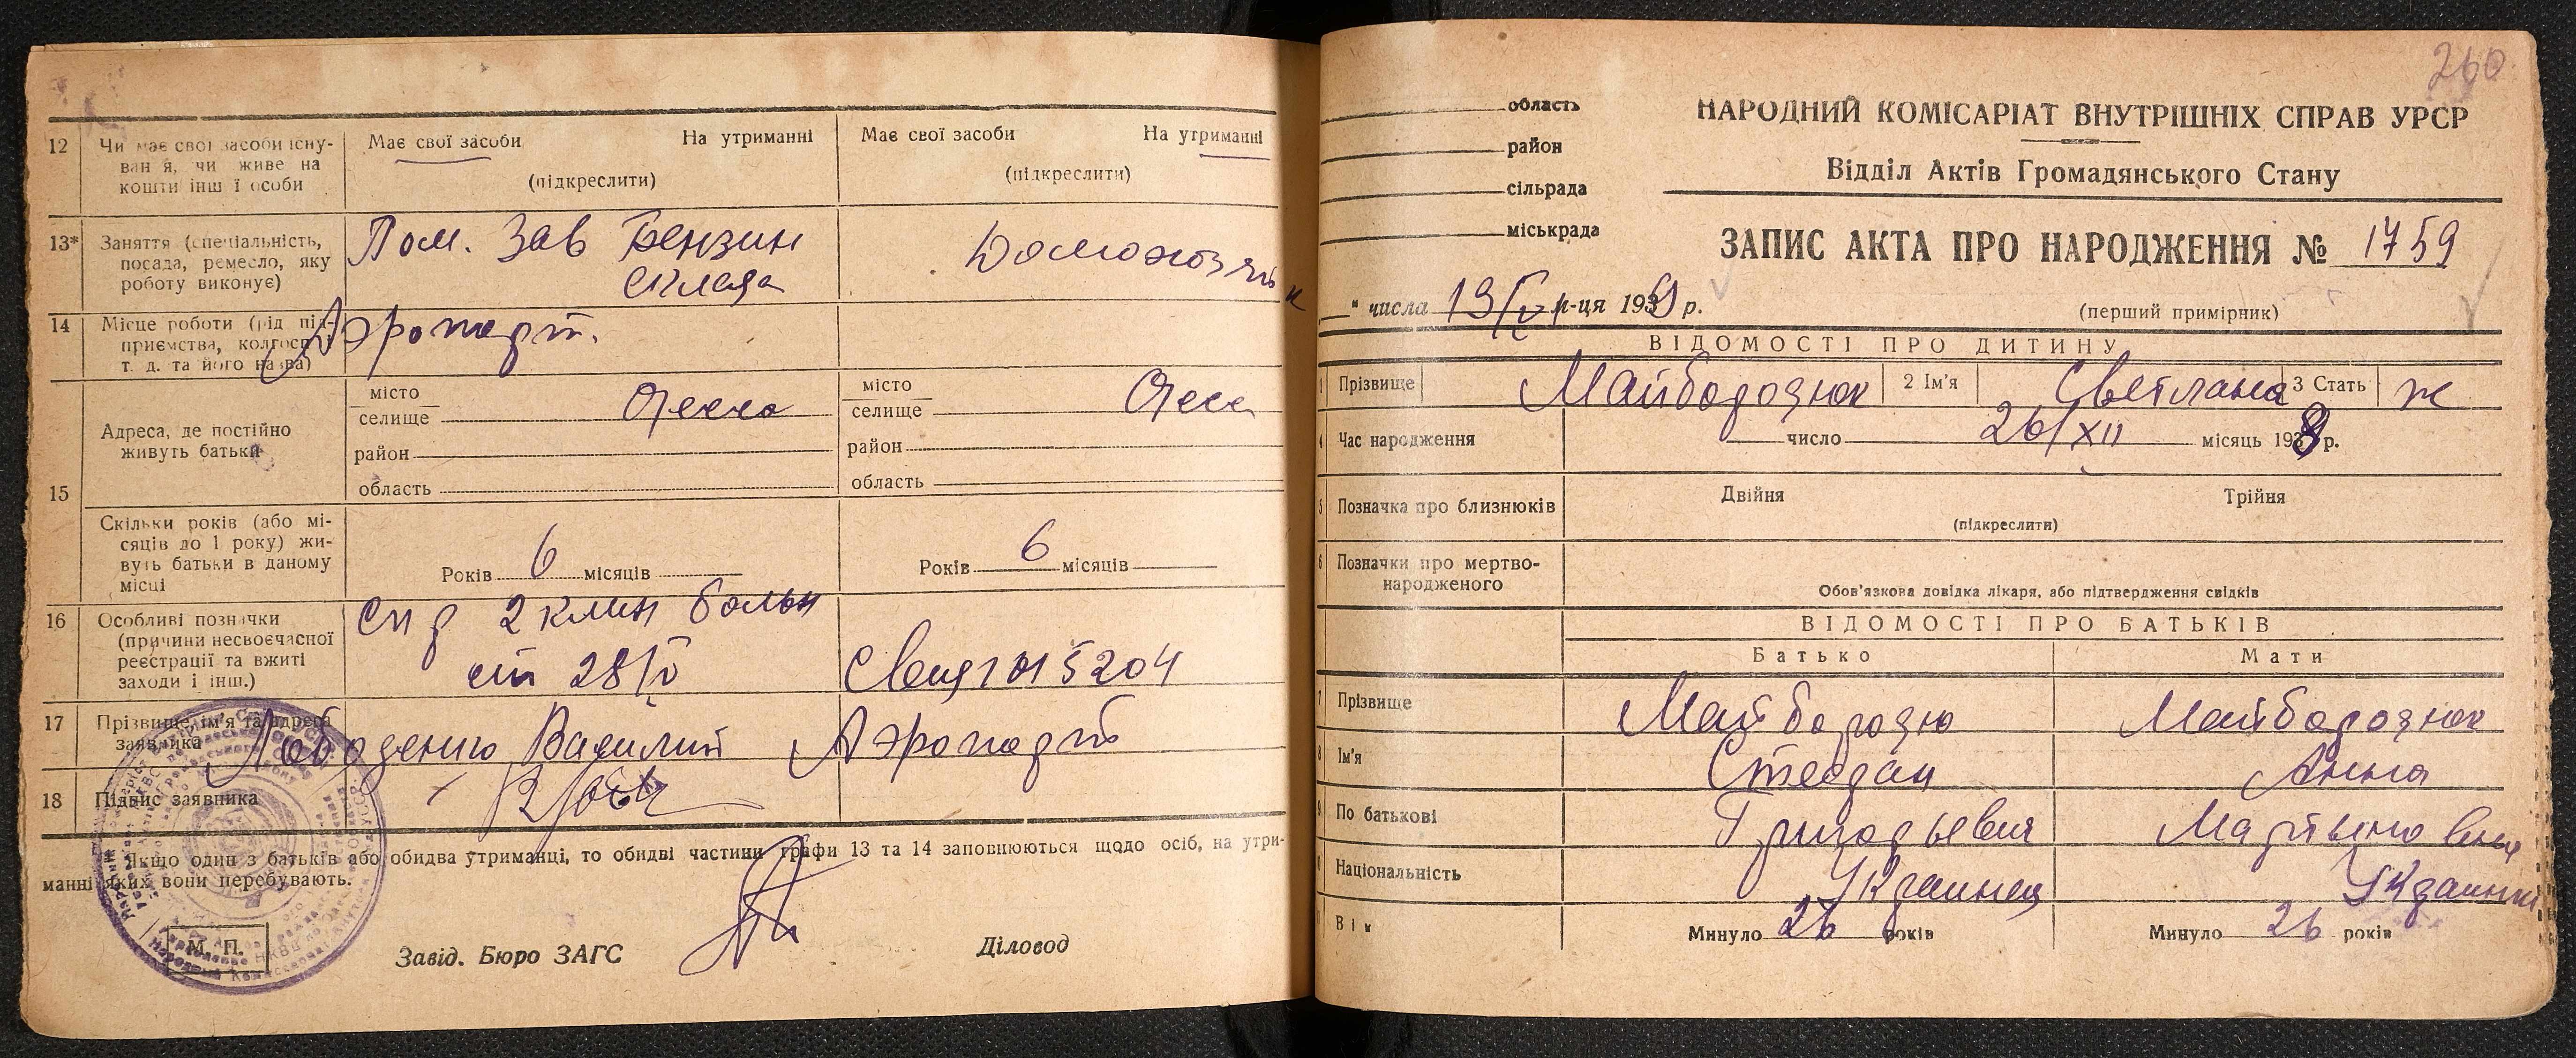 12 Чи має свої засоби існу-
ван я, чи живе на
кошти інш ї особи
Має свої засоби На утриманні
(підкреслити)
Має свої засоби На утриманні
(підкреслити)
13* Заняття (спеціальність,
посада, ремесло, яку
роботу виконує)
Пом. Зав Бензин
склада
Домохозяйк
14 Місце роботи (рід під-
приємства, колгосп
т. д. та його назва)
Аэропорт.
15 Адреса, де постійно
живуть батьки
місто
селище Одесса
район
область
місто
селище Одесс
район
область
Скільки років (або мі-
сяців до 1 року) жи-
вуть батьки в даному
місці
Років 6 місяців
Років 6 місяців
16 Особливі позначки
(причини несвоєчасної
реєстрації та вжиті
заходи і інш.)
Спр 2 клин больн
от 28/V
5204
17 Прізвище ім'я та адреса
заявника
Василий Аэропорт
18 Підпис заявника
Якщо один з батьків або обидва утриманці, то обидві частини графи 13 та 14 заповнюються щодо осіб, на утри-
манні яких вони перебувають.
М. П.
Завід. Бюро ЗАГС
Діловод
260
область
район
сільрада
міськрада
НАРОДНИЙ КОМІСАРІАТ ВНУТРІШНІХ СПРАВ УРСР
Відділ Актів Громадянського Стану
ЗАПИС АКТА ПРО НАРОДЖЕННЯ № 1759
" числа 19/VI м-ця 1939 р.
(перший примірник)
ВІДОМОСТІ ПРО ДИТИНУ
1 Прізвище Майбородюк 2 Ім'я Светлана 3 Стать ж
4 Час народження число 26/XII місяць 1938 р.
5 Позначка про близнюків Двійня Трійня
(підкреслити)
6 Позначки про мертво-
народженого
Обов'язкова довідка лікаря, або підтвердження свідків
ВІДОМОСТІ ПРО БАТЬКІВ
Батько Мати
7 Прізвище Майбородю Майбородюк
8 Ім'я Степан Анна
9 По батькові Григорьевич Мартыновна
Національність Украинец Украинк
Вік Минуло 26 років Минуло 26 років